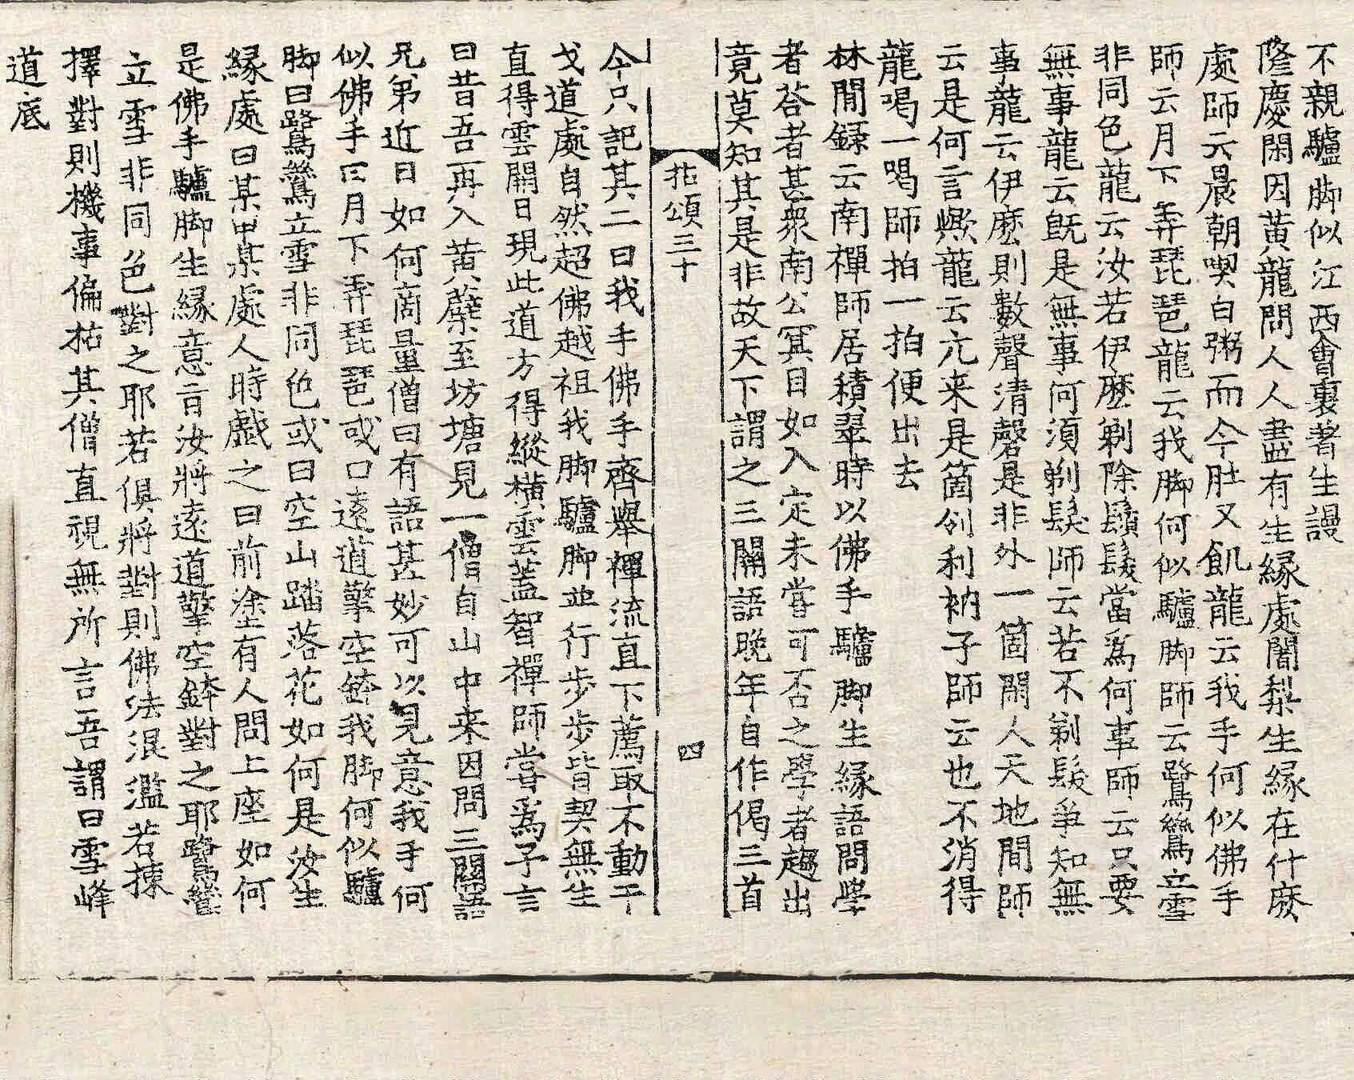 不親驢脚似江西會裏著生謾
隆慶閑因黄龍問人人盡有生緣處闍梨生緣在什麼
處師云晨朝喫白粥而今肚又飢龍云我手何似佛手
師云月下弄琵琶龍云我脚何似驢脚師云鷺鷥立雪
非同色龍云汝若伊麼剃除鬚髮當為何事師云只要
無事龍云既是無事何須剃髮師云若不剃髮爭知無
事龍云伊麼則數聲清磬是非外一箇閑人天地間師
云是何言歟龍云亢来是箇伶利衲子師云也不消得
龍喝一喝師拍一拍便出去
林間録云南禪師居積翠時以佛手驢脚生緣語問學
者荅者甚衆南公冥目如入定未甞可否之學者趨出
竟莫知其是非故天下謂之三關語晩年自作偈三首
拈頌三十
四
今只記其二曰我手佛手齊舉禪流直下薦取不動干
戈道處自然超佛越祖我脚驢脚並行步步皆契無生
直得雲開日現此道方得縱橫雲蓋智禪師甞為予言
曰昔吾再入黄蘗至坊塘見一僧自山中来因問三關語
兄弟近日如何商量僧曰有語甚妙可以見意我手何
似佛手曰月下弄琵琶或曰遠道擎空鉢我脚何似驢
脚曰鷺鷥立雪非同色或曰空山踏落花如何是汝生
緣處曰某甲某處人時戲之曰前塗有人問上座如何
是佛手驢脚生緣意言汝將遠道擎空鉢對之耶鷺鷥
立雪非同色對之耶若俱將對則佛法混濫若揀
擇對則機事偏枯其僧直視無所言吾謂曰雪峰
道底